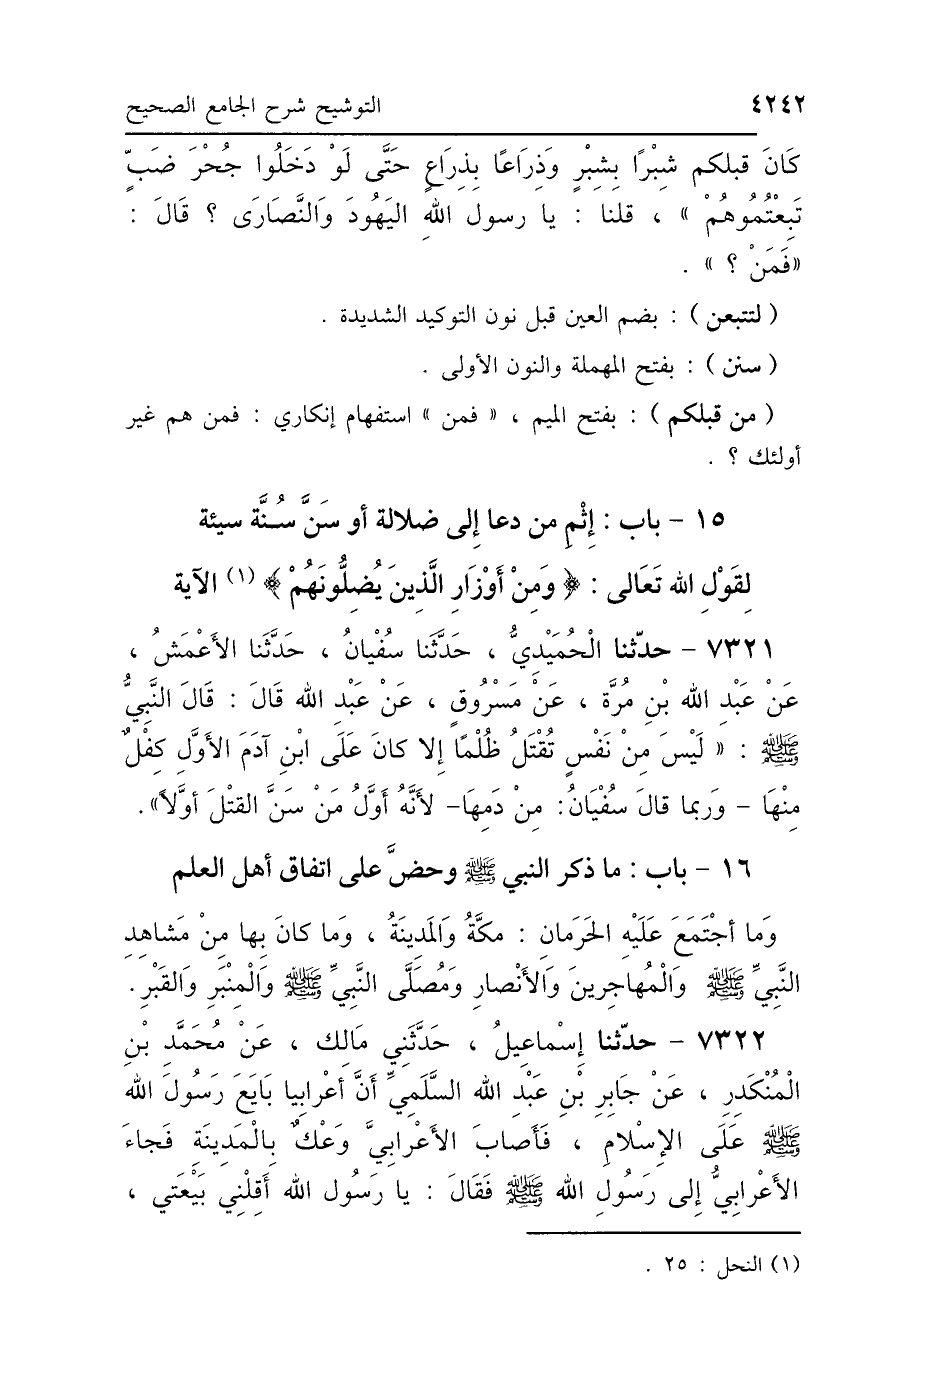 ٤٢٤٢ التوشيح شرح الجامع الصحيح
كَانَ قبلكم شِبْرًا بِشِبْرٍ وَذِرَاعًا بِذِرَاعٍ حَتَّى لَوْ دَخَلُوا جُحْرَ ضَبٍّ
تَبِعْتُمُوهُمْ » ، قلنا : يا رسول اللهِ اليَهُودَ وَالنَّصَارَى ؟ قَالَ :
«فَمَنْ ؟ » .
( لتتبعن ) : بضم العين قبل نون التوكيد الشديدة .
( سنن ) : بفتح المهملة والنون الأولى .
( من قبلكم ) : بفتح الميم ، « فمن » استفهام إنكاري : فمن هم غير
أولئك ؟ .
١٥ - باب : إِثْمِ من دعا إلى ضلالة أو سَنَّ سُنَّة سيئة
لِقَوْلِ الله تَعَالى : ﴿ وَمِنْ أَوْزَارِ الَّذِينَ يُضِلُّونَهُمْ ﴾ (١) الآية
٧٣٢١ - حدّثنا الْحُمَيْدِيُّ ، حَدَّثَنَا سُفْيَانُ ، حَدَّثَنَا الأَعْمَشُ ،
عَنْ عَبْدِ الله بْنِ مُرَّةَ ، عَنْ مَسْرُوقٍ ، عَنْ عَبْدِ الله قَالَ : قَالَ النَّبِيُّ
ﷺ : « لَيْسَ مِنْ نَفْسٍ تُقْتَلُ ظُلْمًا إلا كانَ عَلَى ابْنِ آدَمَ الأَوَّلِ كِفْلٌ
مِنْهَا - وَربما قالَ سُفْيَانُ: مِنْ دَمِهَا- لأَنَّهُ أوَّلُ مَنْ سَنَّ القَتْلَ أوَّلاً» .
١٦ - باب : ما ذكر النبي ﷺ وحضَّ على اتفاق أهل العلم
وَما أجْتَمَعَ عَلَيْهِ الحَرَمانِ : مكَّةُ وَالمَدِينَةُ ، وَما كانَ بِها مِنْ مَشاهِدِ
النَّبِيِّ ﷺ وَالْمُهاجِرِينَ وَالأَنْصارِ وَمُصَلَّى النَّبِيِّ ﷺ وَالْمِنْبَرِ وَالقَبْرِ .
٧٣٢٢ - حدّثنا إِسْماعِيلُ ، حَدَّثَنِي مَالِك ، عَنْ مُحَمَّدِ بْنِ
الْمُنْكَدِرِ ، عَنْ جَابِرِ بْنِ عَبْدِ الله السَّلَمِيِّ أَنَّ أعْرابِيا بَايَعَ رَسُولَ الله
ﷺ عَلَى الإِسْلَامِ ، فَأصابَ الأَعْرابِيَّ وَعْكٌ بِالْمَدِينَةِ فَجاءَ
الأَعْرابِيُّ إلى رَسُولِ الله ﷺ فَقَالَ : يا رَسُول الله أَقِلْنِي بَيْعَتي ،
(١) النحل : ٢٥ .